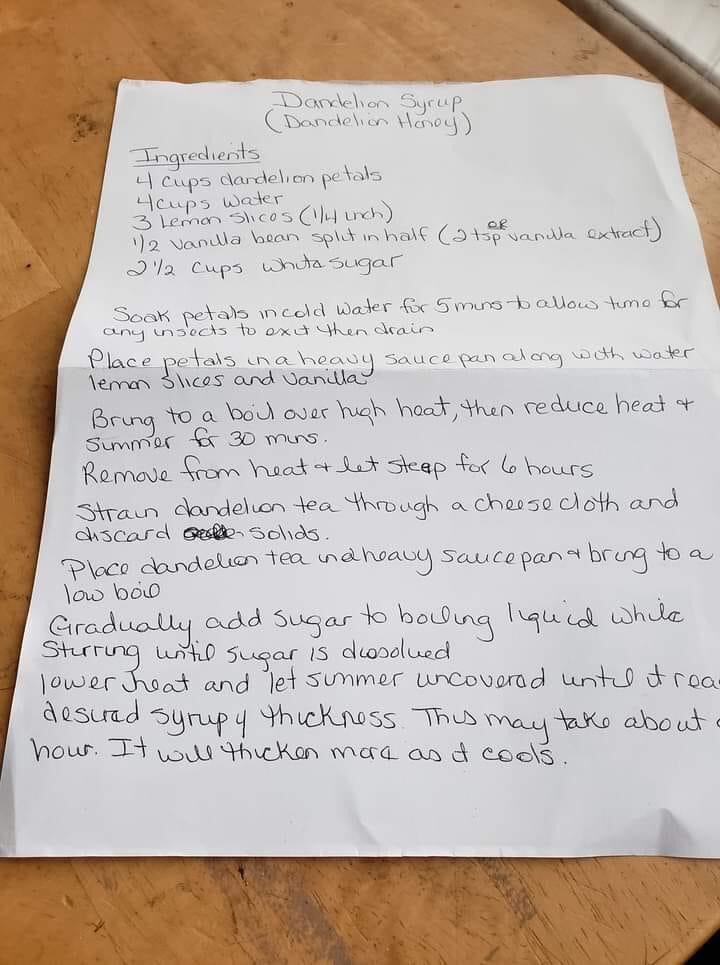 Dandelion Syrup
(Dandelion Honey)
Ingredients
4 cups dandelion petals
4 cups water
3 Lemon Slices (1/4 inch)
1/2 vanilla bean split in half (2 tsp or vanilla extract)
2 1/2 cups white sugar
Soak petals in cold water for 5 mins to allow time for
any insects to exit then drain
Place petals in a heavy sauce pan along with water
lemon slices and vanilla
Bring to a boil over high heat, then reduce heat &
Simmer for 30 mins.
Remove from heat & let steep for 6 hours
Strain dandelion tea through a cheese cloth and
discard solids.
Place dandelion tea in a heavy saucepan & bring to a
low boil
Gradually add sugar to boiling liquid while
Stirring until sugar is dissolved
lower heat and let simmer uncovered until it rea
desired syrupy thickness. This may take about
hour. It will thicken more as it cools.